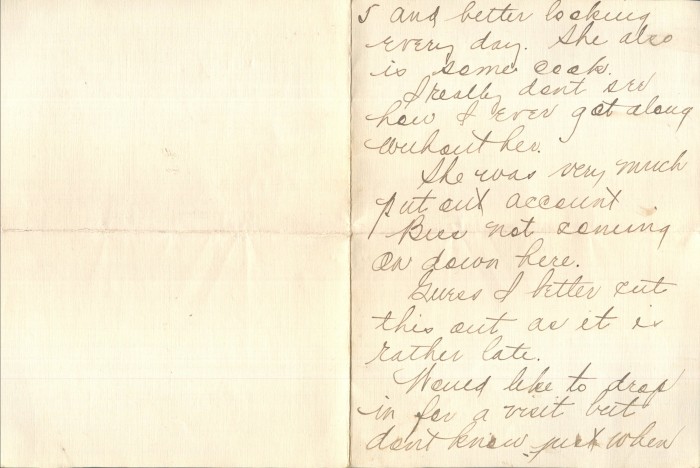 5 and better looking
every day. She also
is some cook.
I really dont see
how I ever got along
without her.
She was very much
put out account
not coming
on down here.
Guess I better cut
this out as it is
rather late.
Would like to drop
in for a visit but
dont know just when